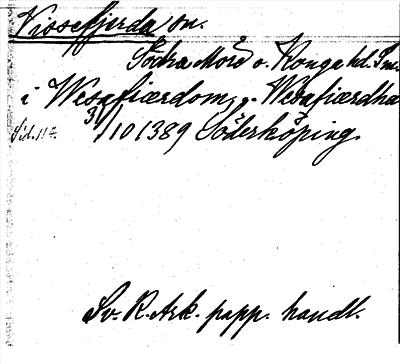 Vissefjerda sn.
Södra Möre o. Konga hd. Sm.
i Wesafiærdom, Wesafiærdha
Sid. 112 3/10 1389 Söderköping.
Sv. R. Ark. papp. handl.